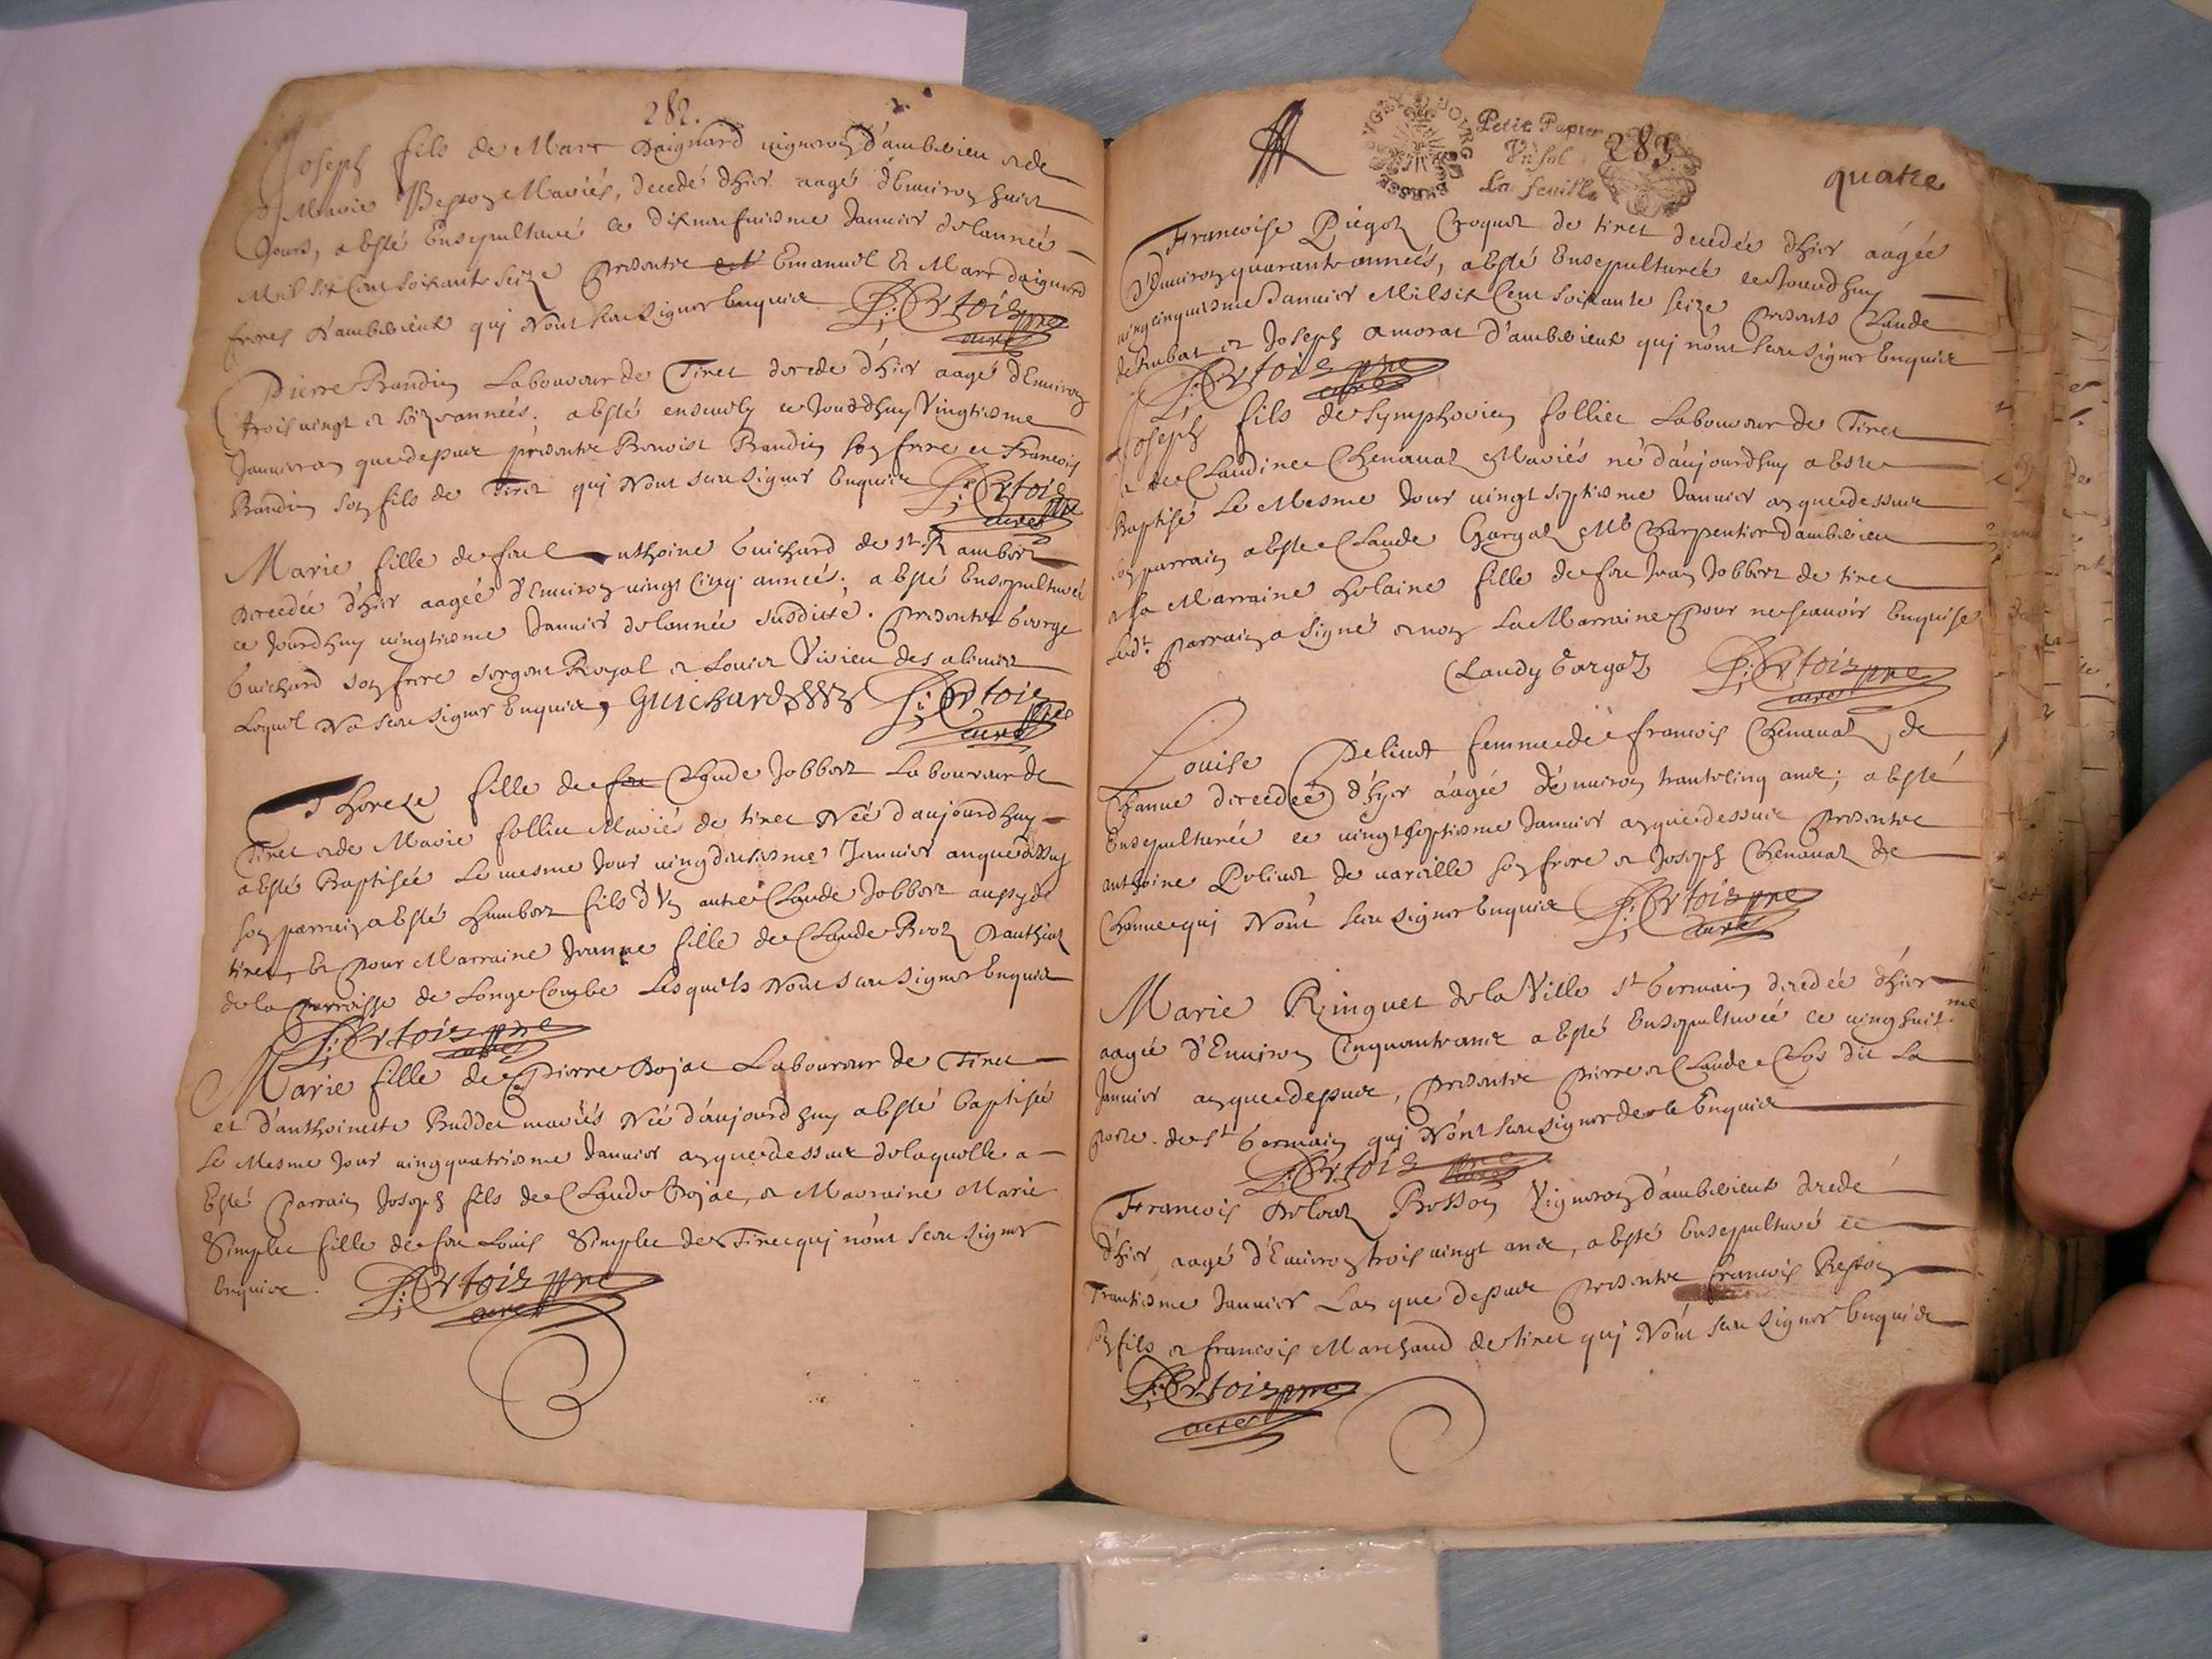 282.
Joseph fils de Marc Daignard vigneron d'ambérieu et de
Marie Besson Mariés, decedé d'hier aagé d'Environ huict
Jours, a Esté Ensepulturé ce dixneufuiesme Januier de lannée
Mil six Cent soixante seize presents Emanuel Et Marc daignard
freres d'amberieux qui N'ont sceu signer Enquis P: Ertois pre
curé
Pierre Brandin Laboureur de Tiret decede d'hier aagé d'Enuiron
trois vingt et années. a Esté enseuely ce Jourd'huy Vingtiesme
Januier an que dessus presents Benoist Brandin son frere et Francois
Brandin son fils de Tiret qui N'ont sceu signer Enquis P: Ertois pre
curé
Marie fille de feu Anthoine Guichard de st Rambert
decedée d'hier aagée d'Enuiron vingt cinq années. a Esté Ensepulturée
ce Jourd'huy vingtiesme Januier de lannée susditte. presents George
Guichard son frere sergent Royal et Louis Vivien des alimes
Lequel Na sceu signer Enquis, Guichard P: Ertois pre
curé
Thereze fille de Claude Jobbert Laboureur de
Tiret et de Marie folliet Mariés de tiret Née d'aujourdhuy
a Esté Baptisée Le mesme Jour vingdeuxiesme Januier an que dessus
son parrein a Esté humbert fils d'Un autre Claude Jobbert aussy de
tiret, Et pour Marraine Jeanne fille de Claude
de la parroisse de Longecombe Lesquels N'ont sceu signer Enquis
P: Ertois pre
curé
Marie fille de Pierre Bojat Laboureur de Tiret
et d'anthoinette Buddet mariés Née d'aujourd'huy a Esté baptisée
Le Mesme Jour vingquatriesme Januier an que dessus de laquelle a
Esté Parrain Joseph fils de Claude Bojat, et Marraine Marie
Simplet fille de feu Louis Simplet de Tiret qui n'ont sceu signer
Enquis. P: Ertois pre
curé
Petit Papier
Vn sol
La feuille
283
quatre
Francoise Piegoz Croquet de tiret decedée d'hier aagée
d'Enuiron quarante années, a Esté Ensepulturée ce Jourd'huy
vingcinquiesme Januier Mil six Cent soixante seize presents Claude
de Rubat et Joseph amorat d'amberieux qui n'ont sceu signer Enquis
P: Ertois pre
curé
Joseph fils de Symphorien folliet Laboureur de Tiret
et de Claudine Chenauaz Mariés né d'aujourdhuy a Este
Baptisé Le Mesme Jour vingt septiesme Januier an que dessus
son parrain a Esté Claude Gargaz Me Charpentier d'ambérieu
et la Marraine helaine fille de feu Jean Jobbert de tiret
Ledt parrain a signé et non La Marraine pour ne scauoir Enquise
Claudy Gargaz P: Ertois pre
curé
Louise Peliuet femme de francois Chenauaz de
Chanue decedée d'hyer aagée d'enuiron trante cinq ans; a Esté
Ensepulturée ce vingt septiesme Januier an que dessus presents
anthoine Peliuet de vareille son frere et Joseph Chenauaz de
Chanue qui N'ont sceu signer Enquis P: Ertois pre
curé
Marie Ringuet de la Ville st Germain decedée d'hier
aagée d'Enuiron Cinquante ans a Esté Ensepulturée ce vinghuit.me
Januier an que dessus, presents pierre et Claude Clos dit La
porte. de st Germain qui N'ont sceu signer de ce Enquis
P: Ertois pre
curé
Francois Besson Vigneron d'amberieux decedé
d'hier aagé d'Enuiron trois vingt ans, a Esté Ensepulturé ce
Trantiesme Januier Lan que dessus presents francois Besson
son fils et francois Marchand de tiret qui N'ont sceu signer Enquis
P: Ertois pre
curé